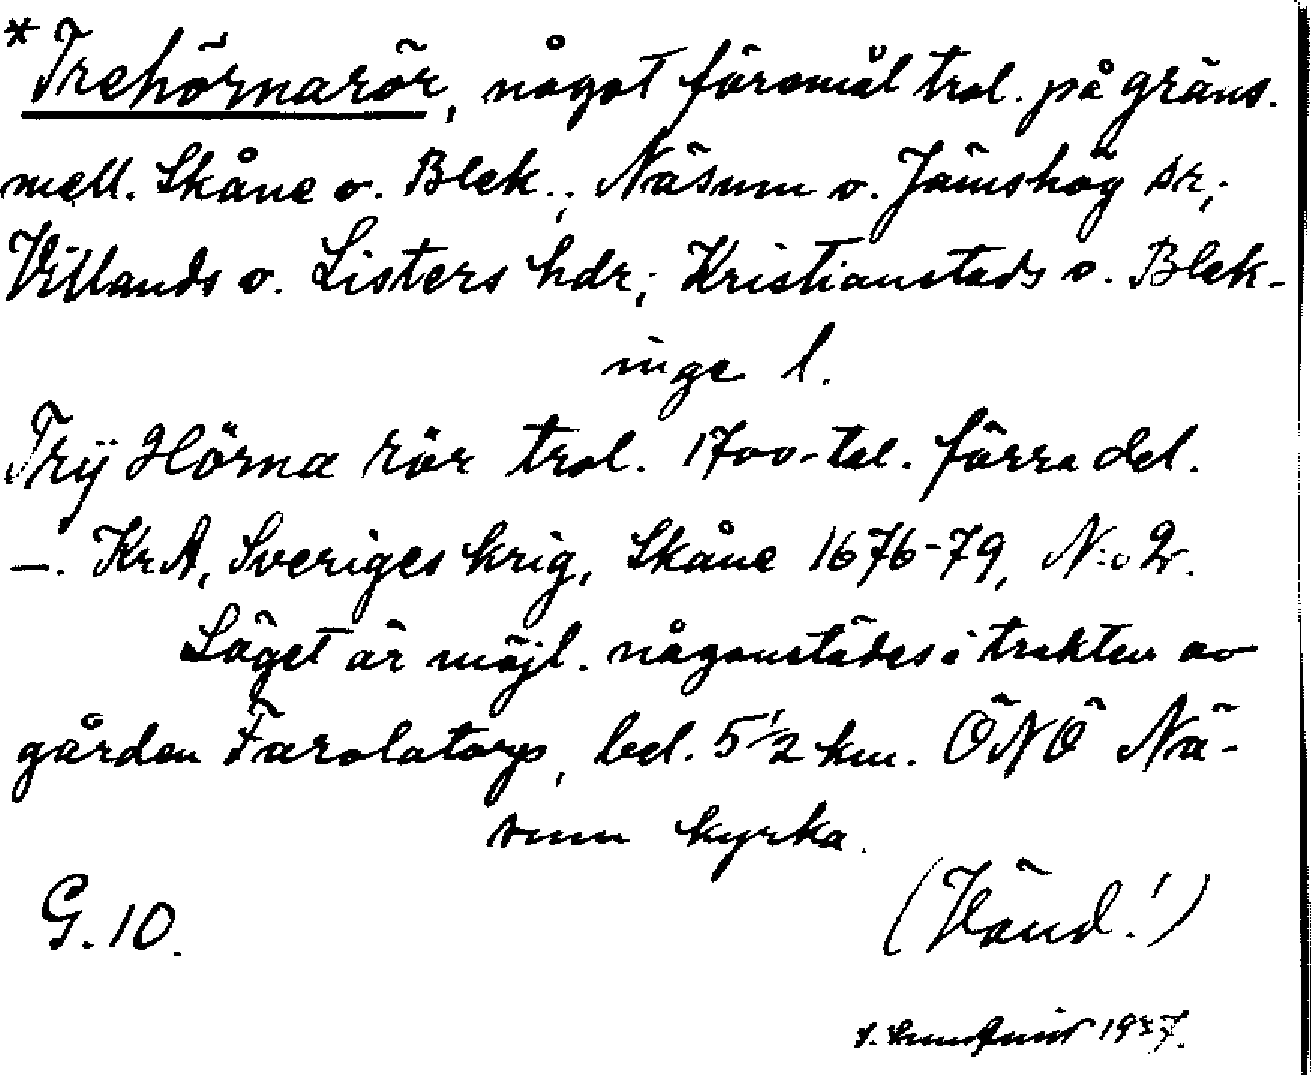 *Trehörnarör, något föremål trol. på gräns.
mell. Skåne o. Blek.; Näsum o. Jämshög sr;
Villands o. Listers hdr; Kristianstads o. Blek-
inge l.
Trÿ Hörna rör trol. 1700-tal. förra del.
—. KrA, Sveriges krig, Skåne 1676-79, N:o 2.
Läget är möjl. någonstädes i trakten av
gården Farolatorp, bel. 5 1/2 km. ÖNÖ Nä-
sum kyrka.
G. 10. (Händ!)
1927.